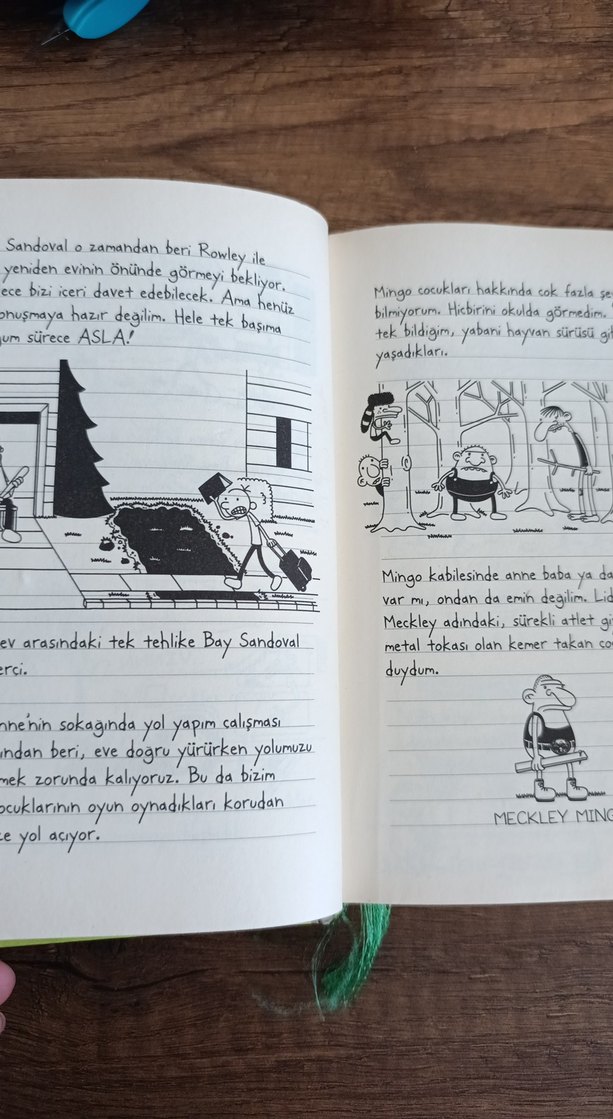 Sandoval o zamandan beri Rowley ile
yeniden evinin önünde görmeyi bekliyor.
bizi içeri davet edebilecek. Ama henüz
hazır değilim. Hele tek başıma
sürece ASLA!
ev arasındaki tek tehlike Bay Sandoval
sokağında yol yapım çalışması
beri, eve doğru yürürken yolumuzu
zorunda kalıyoruz. Bu da bizim
oyun oynadıkları korudan
yol açıyor.
Mingo çocukları hakkında çok fazla
bilmiyorum. Hiçbirini okulda görmedim.
tek bildiğim, yabani hayvan sürüsü
yaşadıkları.
Mingo kabilesinde anne baba ya
var mı, ondan da emin değilim.
Meckley adındaki, sürekli atlet
metal tokası olan kemer takan
duydum.
MECKLEY